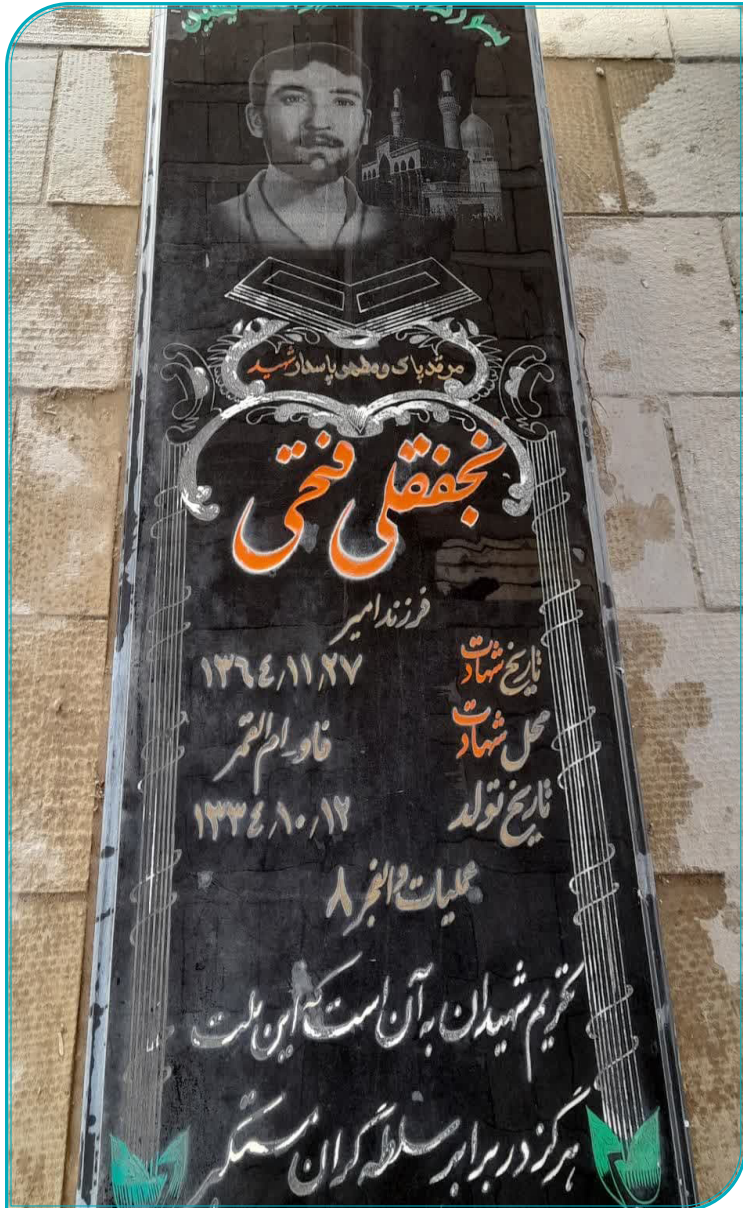 مرقد پاک و مطهر پاسدار شهید
نجفقلی فتحی
فرزند امیر
تاریخ شهادت ۱۳٦٤٫۱۱٫۲۷
محل شهادت فاو_ام القمر
تاریخ تولد ۱۳۳٤٫۱۰٫۱۲
عملیات والفجر ۸
تکریم شهیدان به آن است که این ملت
هرگز در برابر سلطه گران مستکبر